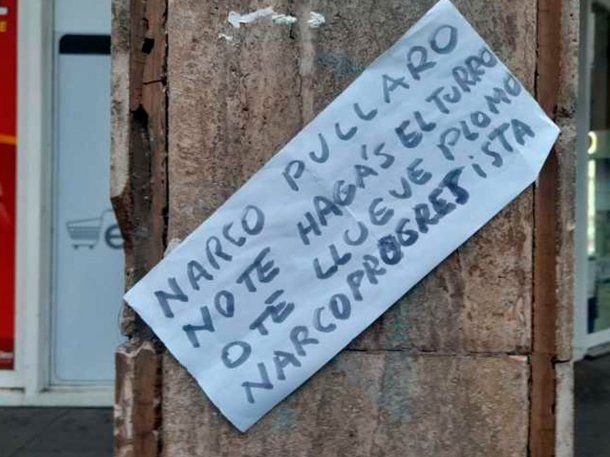 NARCO PULLARO
NO TE HAGÁS EL TURRO
O TE LLUEVE PLOMO
NARCOPROGRESISTA